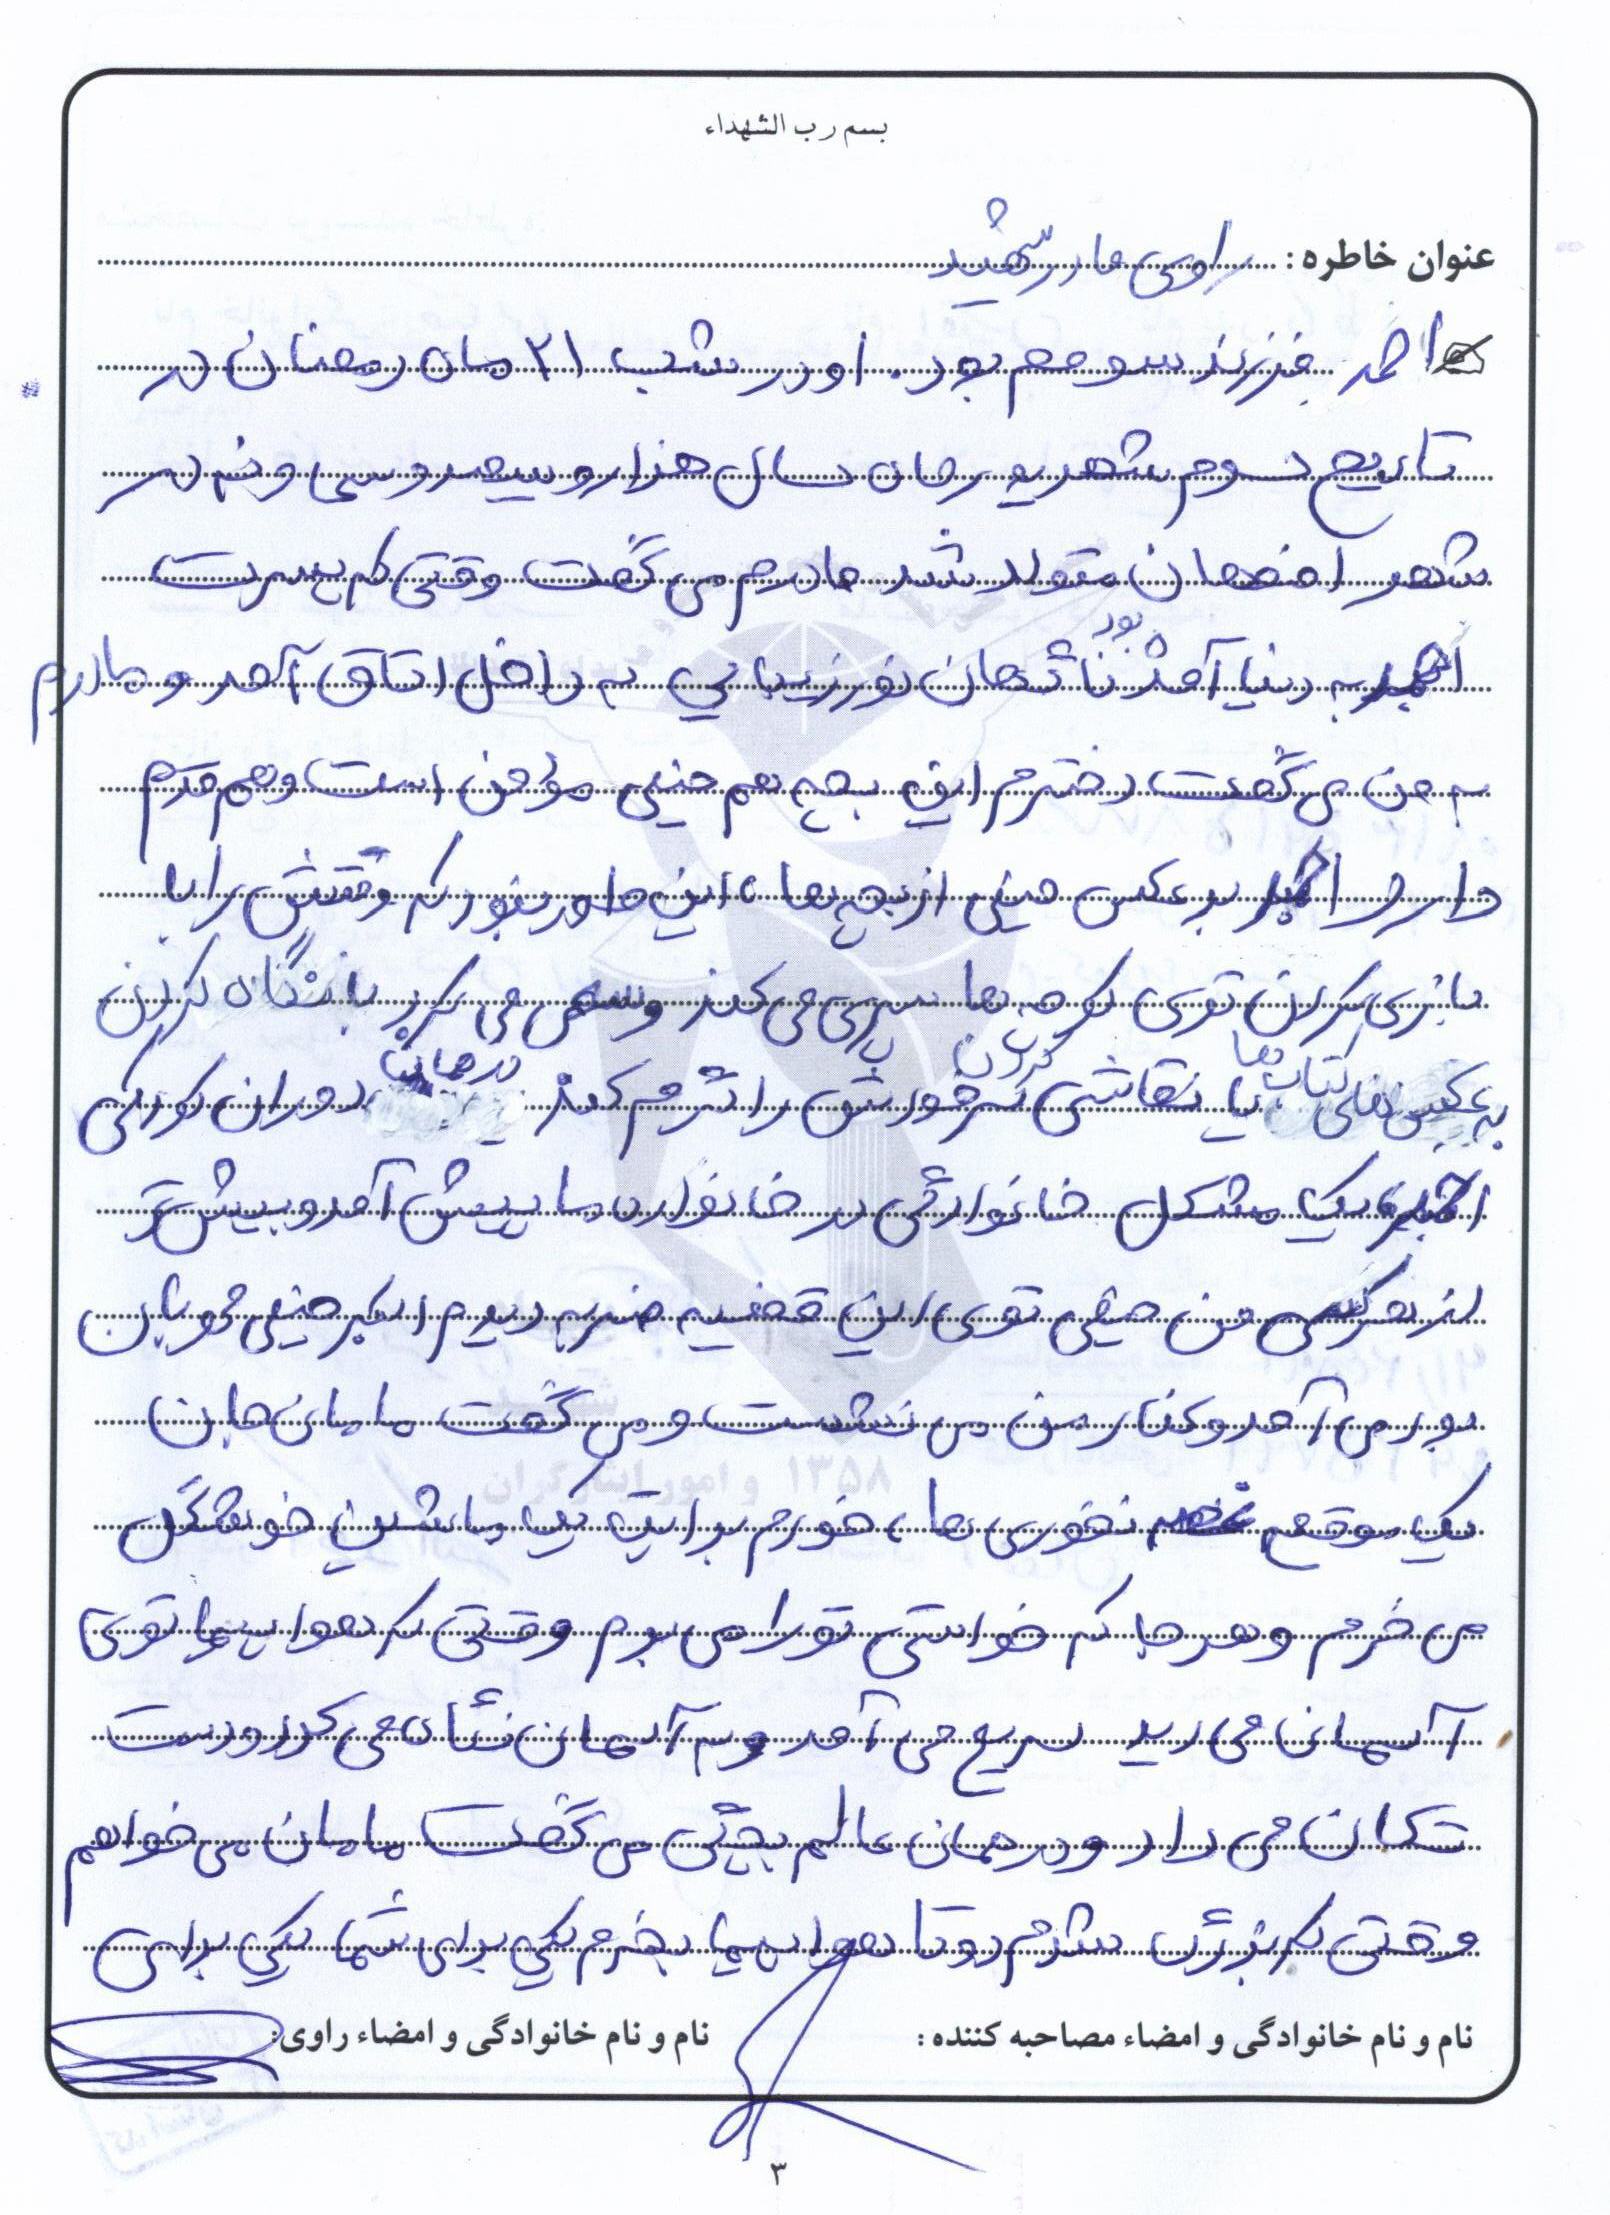 بسم رب الشهداء
عنوان خاطره: راوی مادر شهید
احمد فرزند سومم بود. او در شب ۲۱ ماه رمضان در
تاریخ سوم شهریور ماه سال هزار و سیصد و سی و نه در
شهر اصفهان متولد شد مادرم می گفت وقتی که پسرت
به دنیا آمده بود ناگهان نور زیبایی به داخل اتاق آمد و مادرم
به من می گفت دخترم این بچه هم خیلی مؤمن است و هم قدم
دارد بر عکس خیلی از بچه ها، این طور نبود که وقتش را با
بازی کردن توی کوچه ها سپری می کند و سعی می کرد با نگاه کردن
به عکس های کتاب ها یا نقاشی کردن سر خودش را گرم کند در همان دوران کودکی
یک مشکل خانوادگی در خانواده ما پیش آمد و بیش تر
از هر کسی من خیلی توی این قضیه ضربه دیدم اکبر خیلی مهربان
بود می آمد و کنار من می نشست و می گفت مامان جان
یک موقع غصه نخوری ها، خودم برایت یک ماشین خوشگل
می خرم و هر جا که خواستی تو را می برم وقتی که هواپیما توی
آسمان می دید سریع می آمد و به آسمان نشان می کرد و دست
تکان می داد و در همان عالم بچگی می گفت مامان می خواهم
وقتی که بزرگ شدم دو تا هواپیما بخرم یکی برای شما یکی برای
نام و نام خانوادگی و امضاء مصاحبه کننده: نام و نام خانوادگی و امضاء راوی:
۳